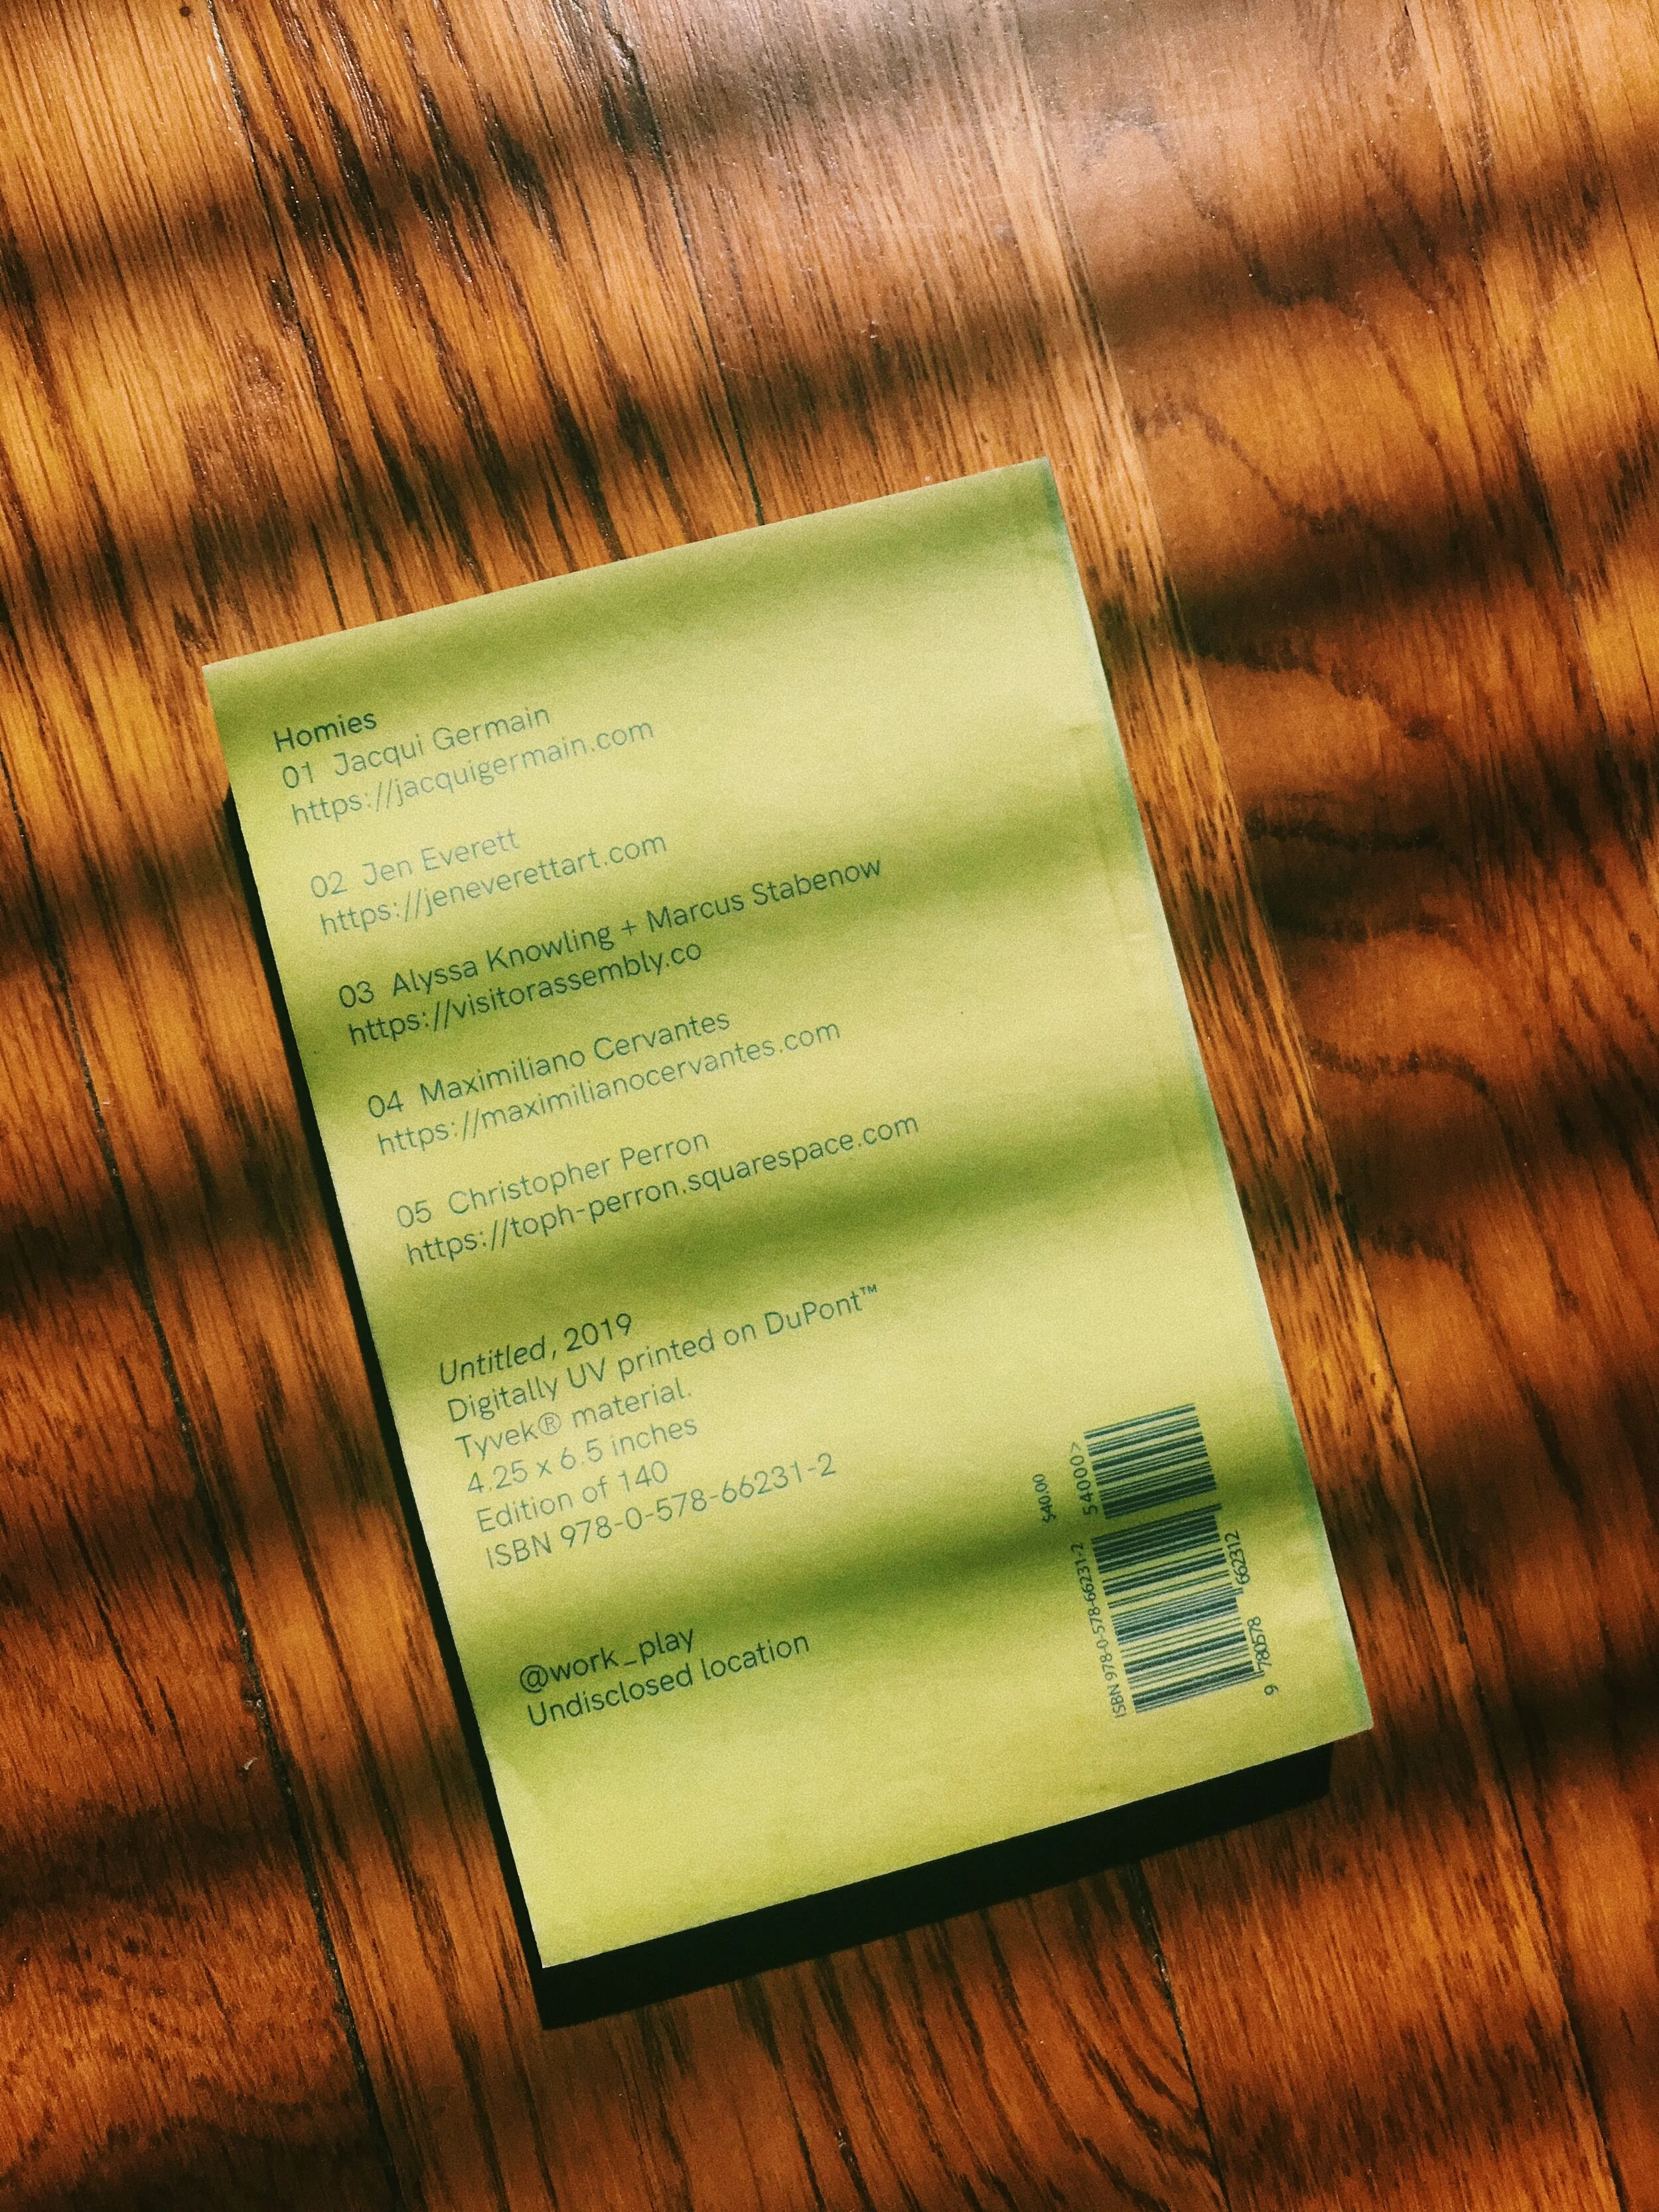 Homies
01 Jacqui Germain
https://jacquigermain.com
02 Jen Everett
https://jeneverettart.com
03 Alyssa Knowling + Marcus Stabenow
https://visitorassembly.co
04 Maximiliano Cervantes
https://maximilianocervantes.com
05 Christopher Perron
https://toph-perron.squarespace.com
Untitled, 2019
Digitally UV printed on DuPont™
Tyvek® material.
4.25 x 6.5 inches
Edition of 140
ISBN 978-0-578-66231-2
@work_play
Undisclosed location
$40.00
54000>
ISBN 978-0-578-66231-2
9 780578 662312